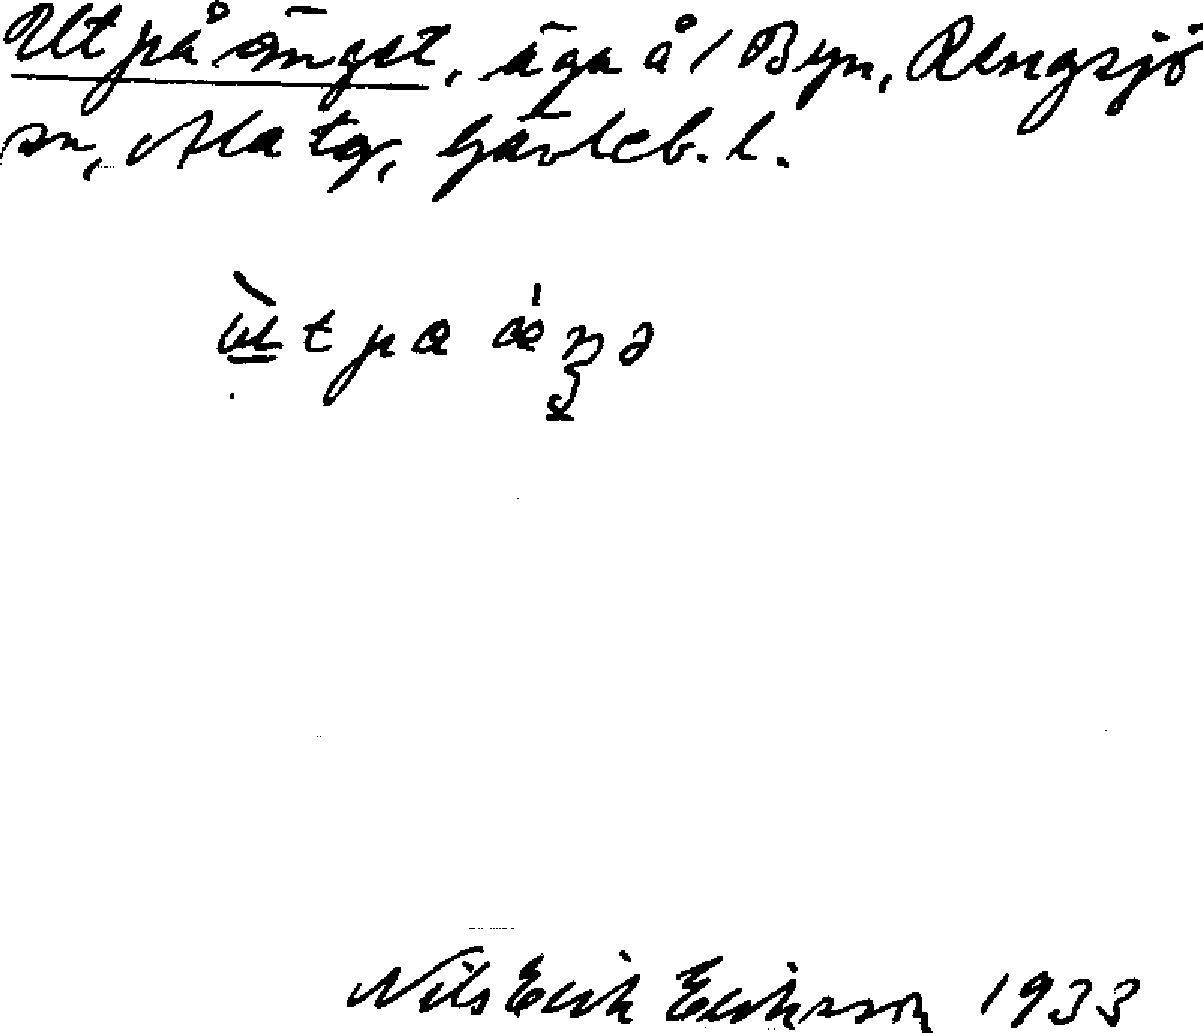 Ut på änget, äga å 1 Byn, Rengsjö
sn, Ala tg, Gävleb. l.
Nils Erik Eriksson 1933